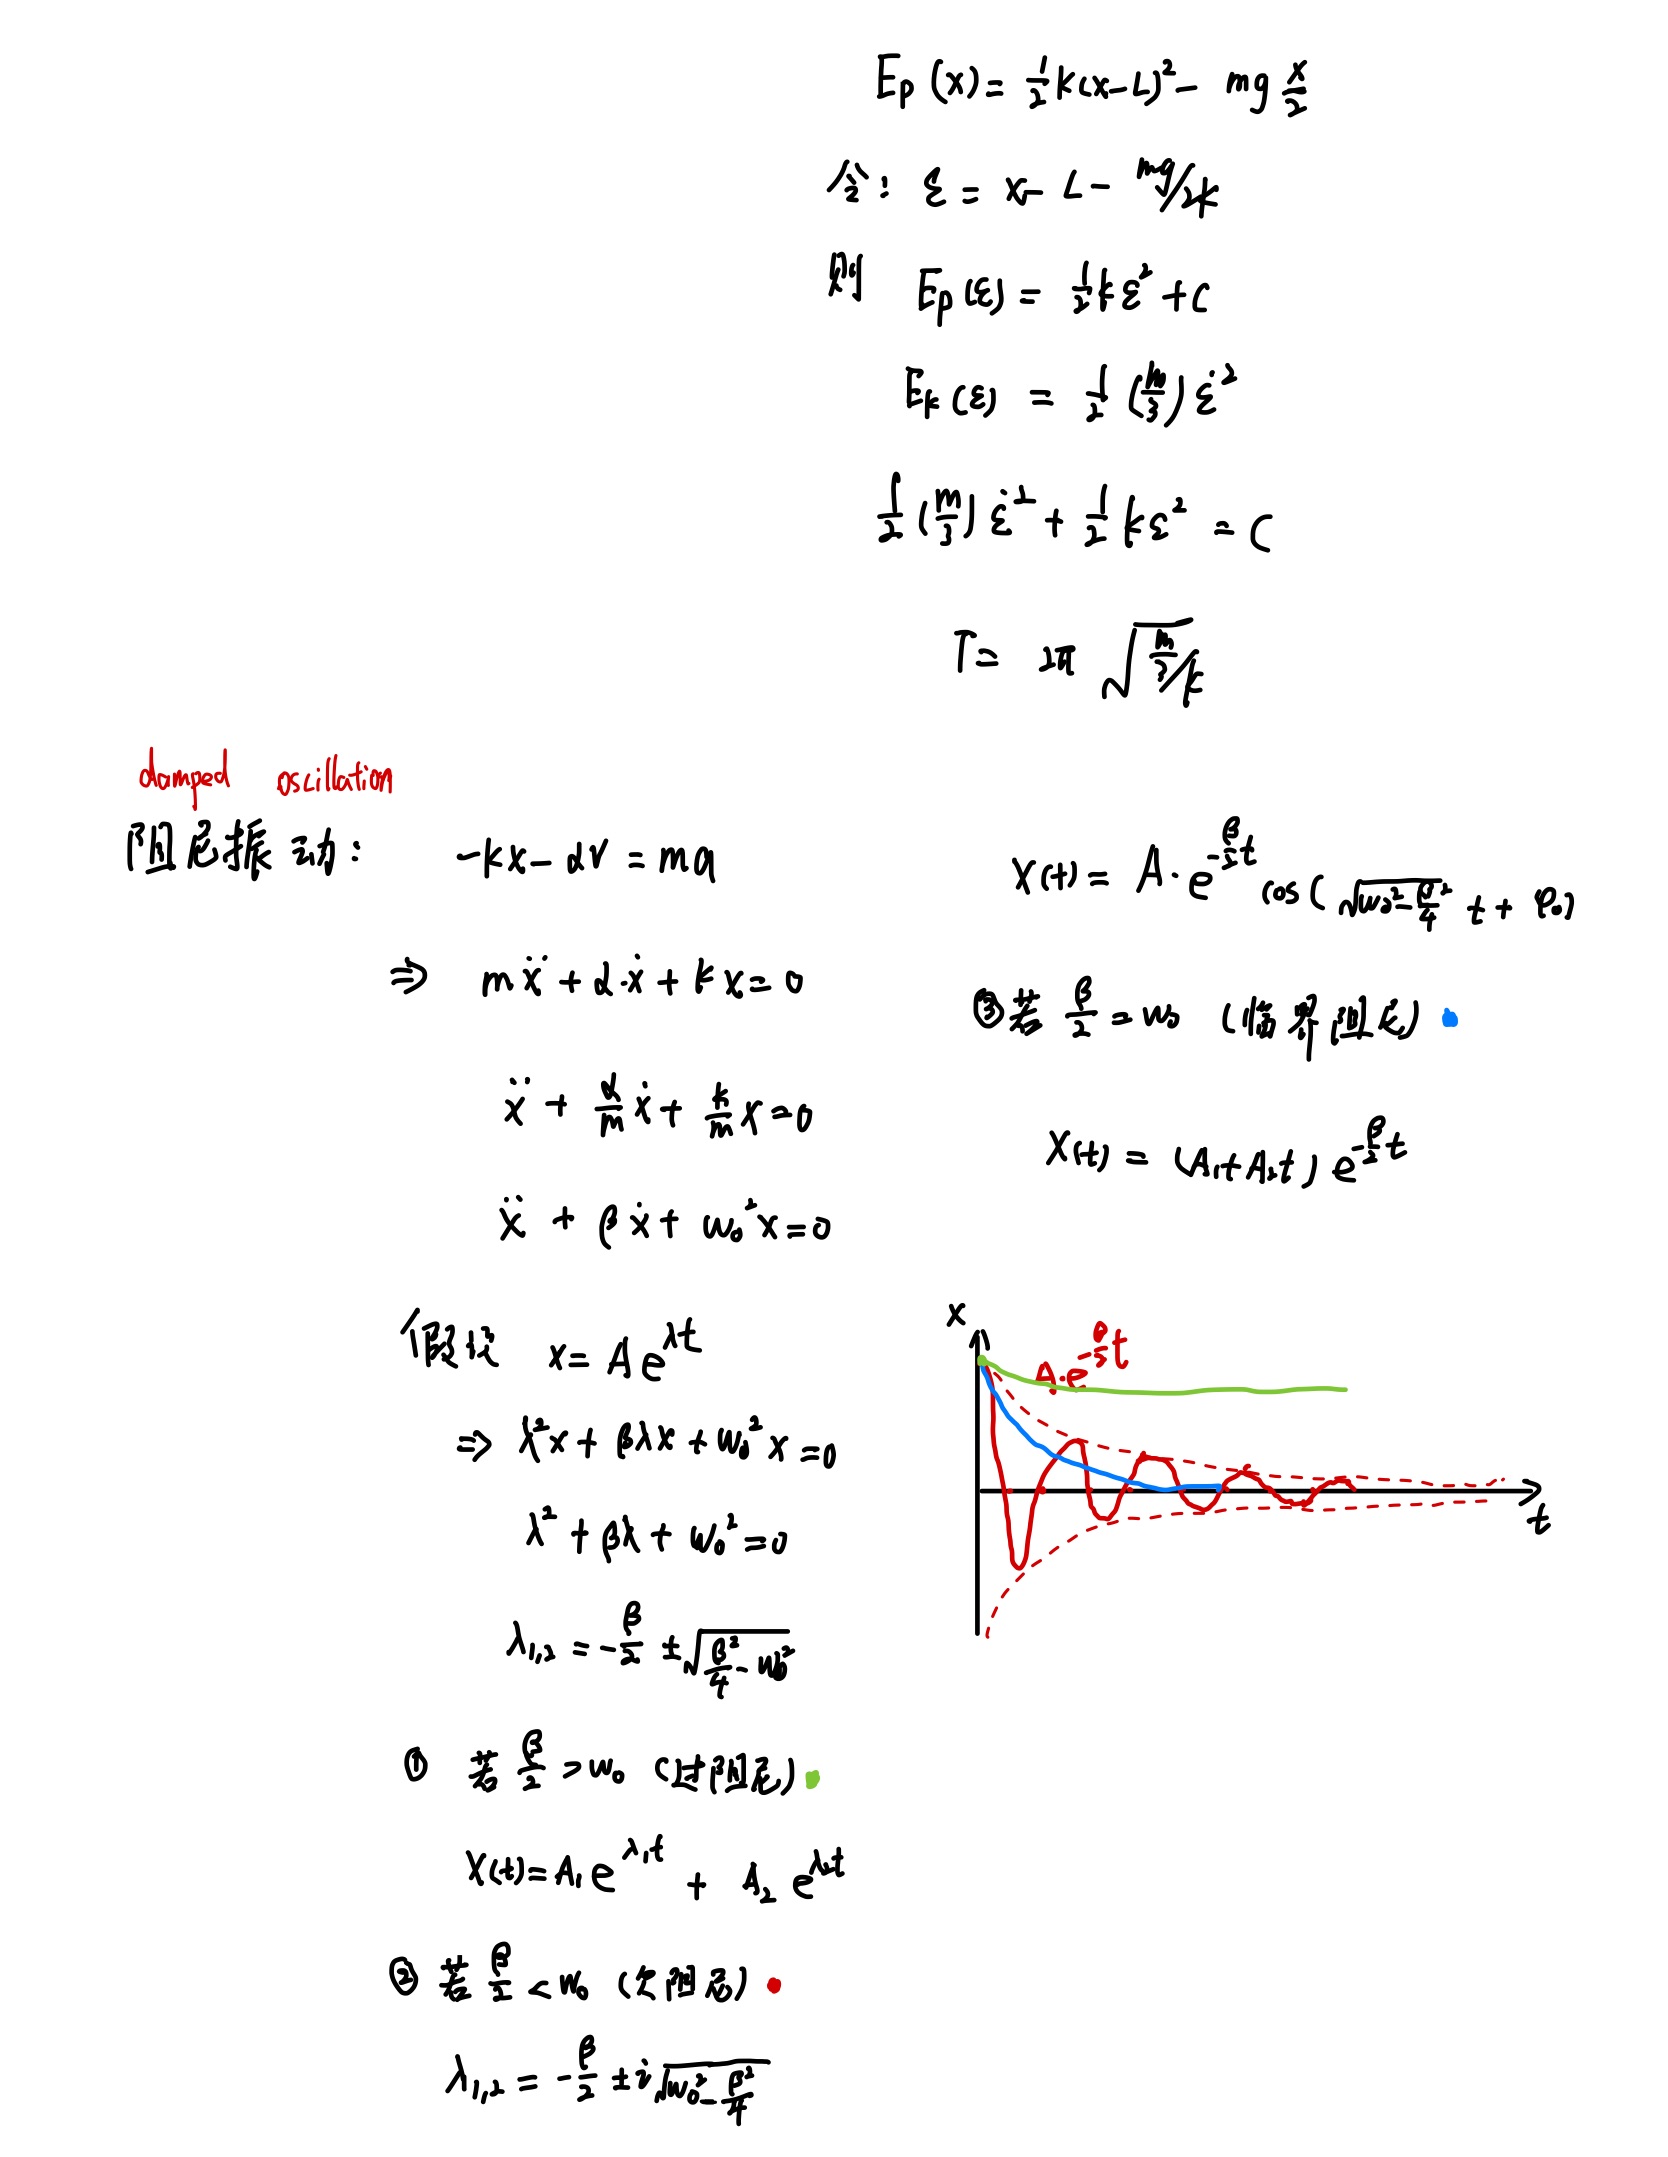 Ep(x) = 1/2 k(x-L)² - mg x/2
令: ε = x - L - mg/2k
则 Ep(ε) = 1/2 kε² + C
Ek(ε) = 1/2 (m/3) ε̇²
1/2 (m/3) ε̇² + 1/2 kε² = C
T = 2π √(m/3/k)
damped oscillation
阻尼振动: -kx - αv = ma
⇒ mẍ + α·ẋ + kx = 0
ẍ + α/m ẋ + k/m x = 0
ẍ + βẋ + ω₀²x = 0
假设 x = Ae^(λt)
⇒ λ²x + βλx + ω₀²x = 0
λ² + βλ + ω₀² = 0
λ₁,₂ = -β/2 ± √(β²/4 - ω₀²)
① 若 β/2 > ω₀ (过阻尼)
X(t) = A₁e^(λ₁t) + A₂e^(λ₂t)
② 若 β/2 < ω₀ (欠阻尼)
λ₁,₂ = -β/2 ± i√(ω₀² - β²/4)
X(t) = A·e^(-β/2 t) cos(√(ω₀² - β²/4) t + φ₀)
③ 若 β/2 = ω₀ (临界阻尼)
X(t) = (A₁ + A₂t) e^(-β/2 t)
x
A·e^(-β/2 t)
t